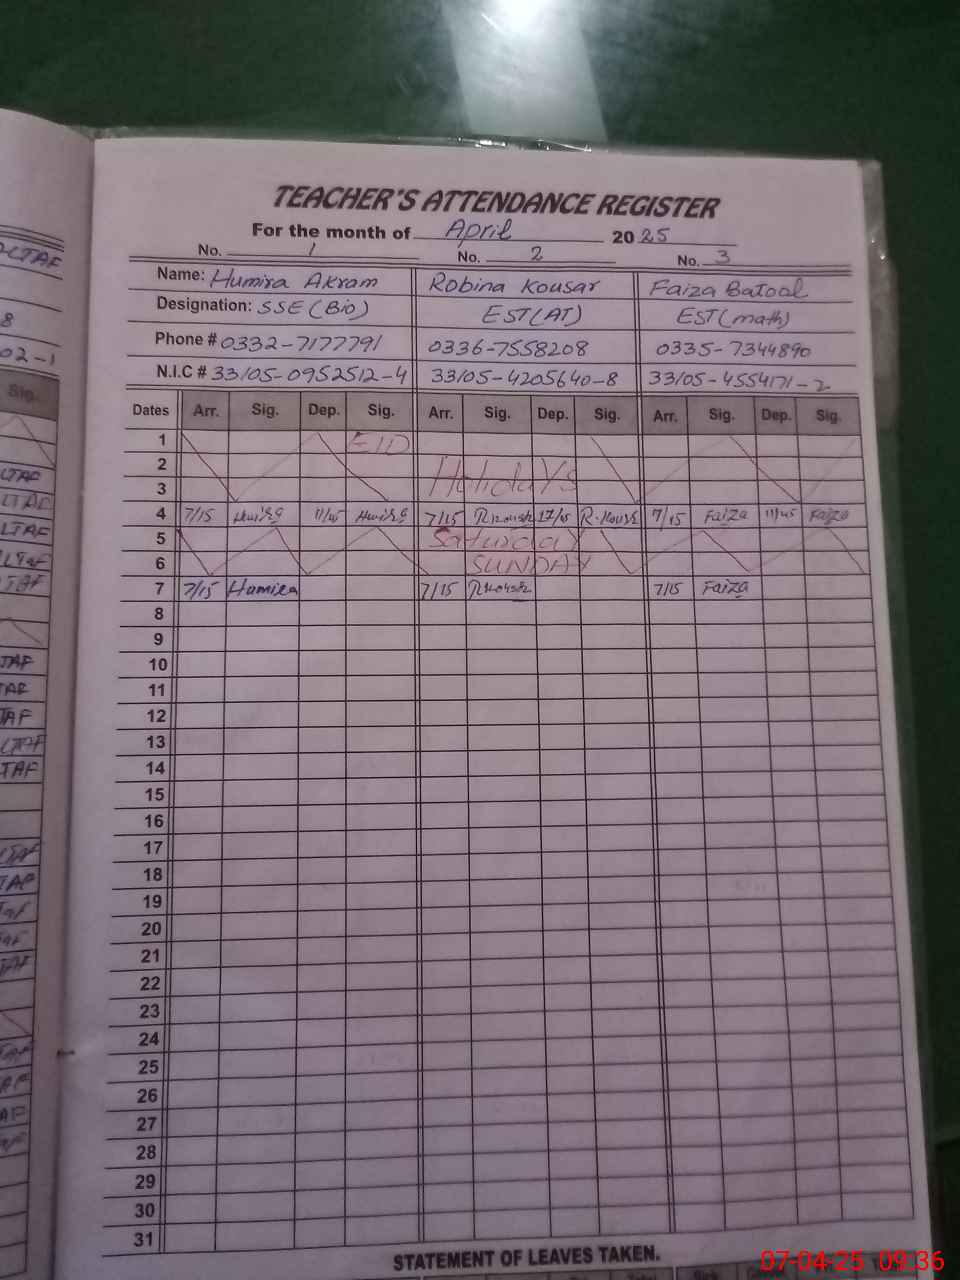 TEACHER'S ATTENDANCE REGISTER
For the month of April 2025
No. 1 No. 2 No. 3
Name: Humira Akram Robina Kousar Faiza Batool
Designation: SSE (Bio) EST(AT) EST(math)
Phone # 0332-7177791 0336-7558208 0335-7344890
N.I.C # 33105-0952512-4 33105-4205640-8 33105-4554171-2
Dates Arr. Sig. Dep. Sig. Arr. Sig. Dep. Sig. Arr. Sig. Dep. Sig.
1 EID
2 Holidays
3
4 7/15 11/45 7/15 R. Kousr 7/15 Faiza 11/45 Faiza
5 Saturday
6 SUNDAY
7 7/15 Humira 7/15 7/15 Faiza
8
9
10
11
12
13
14
15
16
17
18
19
20
21
22
23
24
25
26
27
28
29
30
31
STATEMENT OF LEAVES TAKEN.
07-04-25 09:36